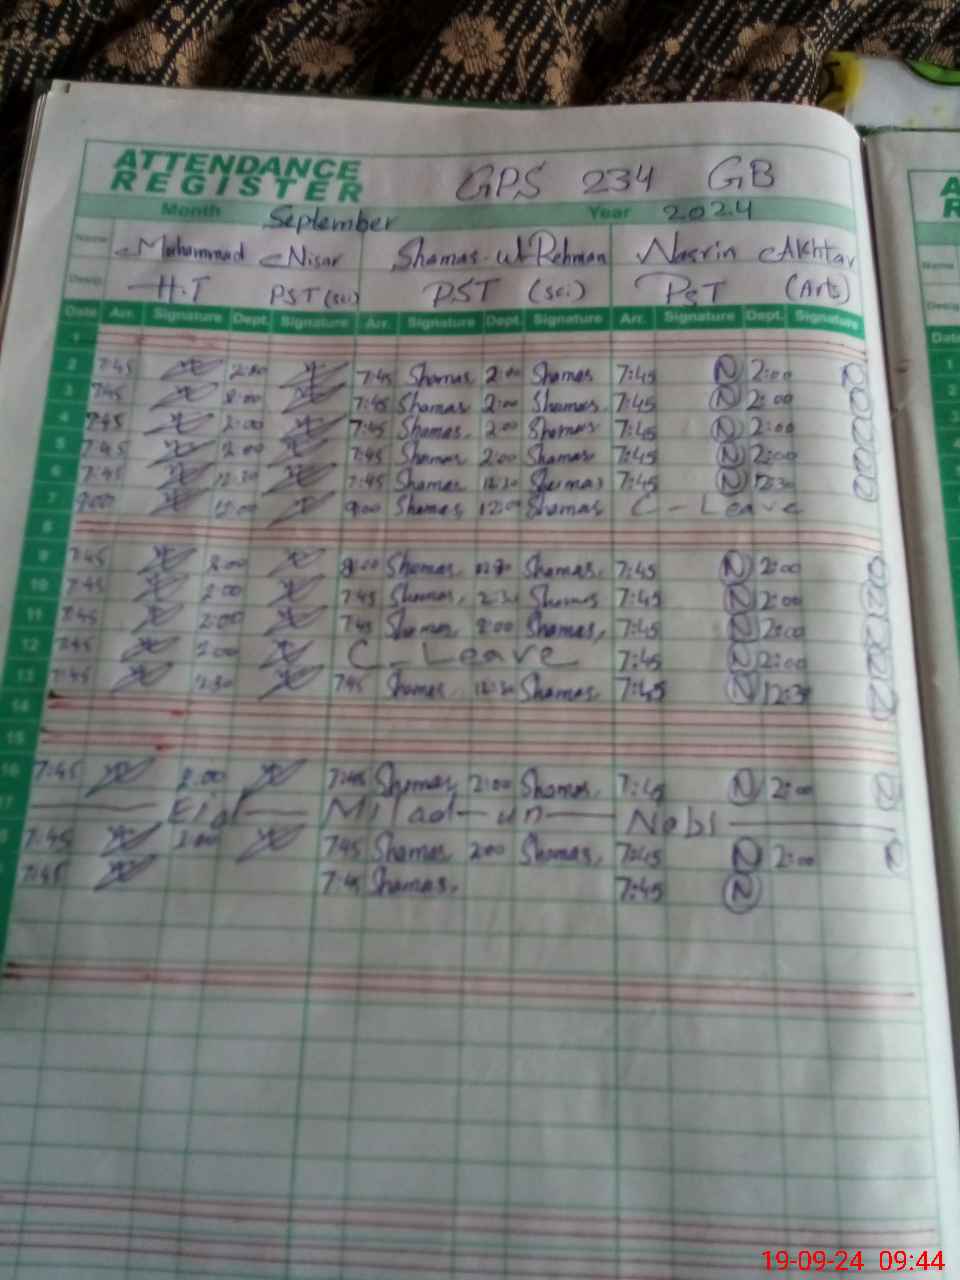 ATTENDANCE REGISTER GPS 234 GB
Month September Year 2024
Name Muhammad Nisar Shamas-ul-Rehman Nasrin Akhtar
Desig. H.T PST (sci) PST (sci) PST (Arts)
Date Arr. Signature Dept. Signature Arr. Signature Dept. Signature Arr. Signature Dept. Signature
1
2 7:45 2:00 7:45 Shamas 2:00 Shamas 7:45 N 2:00
3 7:45 2:00 7:45 Shamas 2:00 Shamas 7:45 N 2:00
4 7:45 2:00 7:45 Shamas 2:00 Shamas 7:45 N 2:00
5 7:45 2:00 7:45 Shamas 2:00 Shamas 7:45 N 2:00
6 7:45 12:30 7:45 Shamas 12:30 Shamas 7:45 N 12:30
7 9:00 12:00 9:00 Shamas 12:00 Shamas C - Leave
8
9 7:45 2:00 8:00 Shamas Shamas 7:45 N 2:00
10 7:45 2:00 7:45 Shamas 2:30 Shamas 7:45 N 2:00
11 7:45 2:00 7:45 Shamas 2:00 Shamas 7:45 N 2:00
12 7:45 2:00 C - Leave 7:45 N 2:00
13 7:45 12:30 7:45 Shamas 12:30 Shamas 7:45 N 12:30
14
15
16 7:45 2:00 7:45 Shamas 2:00 Shamas 7:45 N 2:00
17 Eid Milad-un Nabi
7:45 2:00 7:45 Shamas 2:00 Shamas 7:45 N 2:00
7:45 7:45 Shamas 7:45 N
19-09-24 09:44